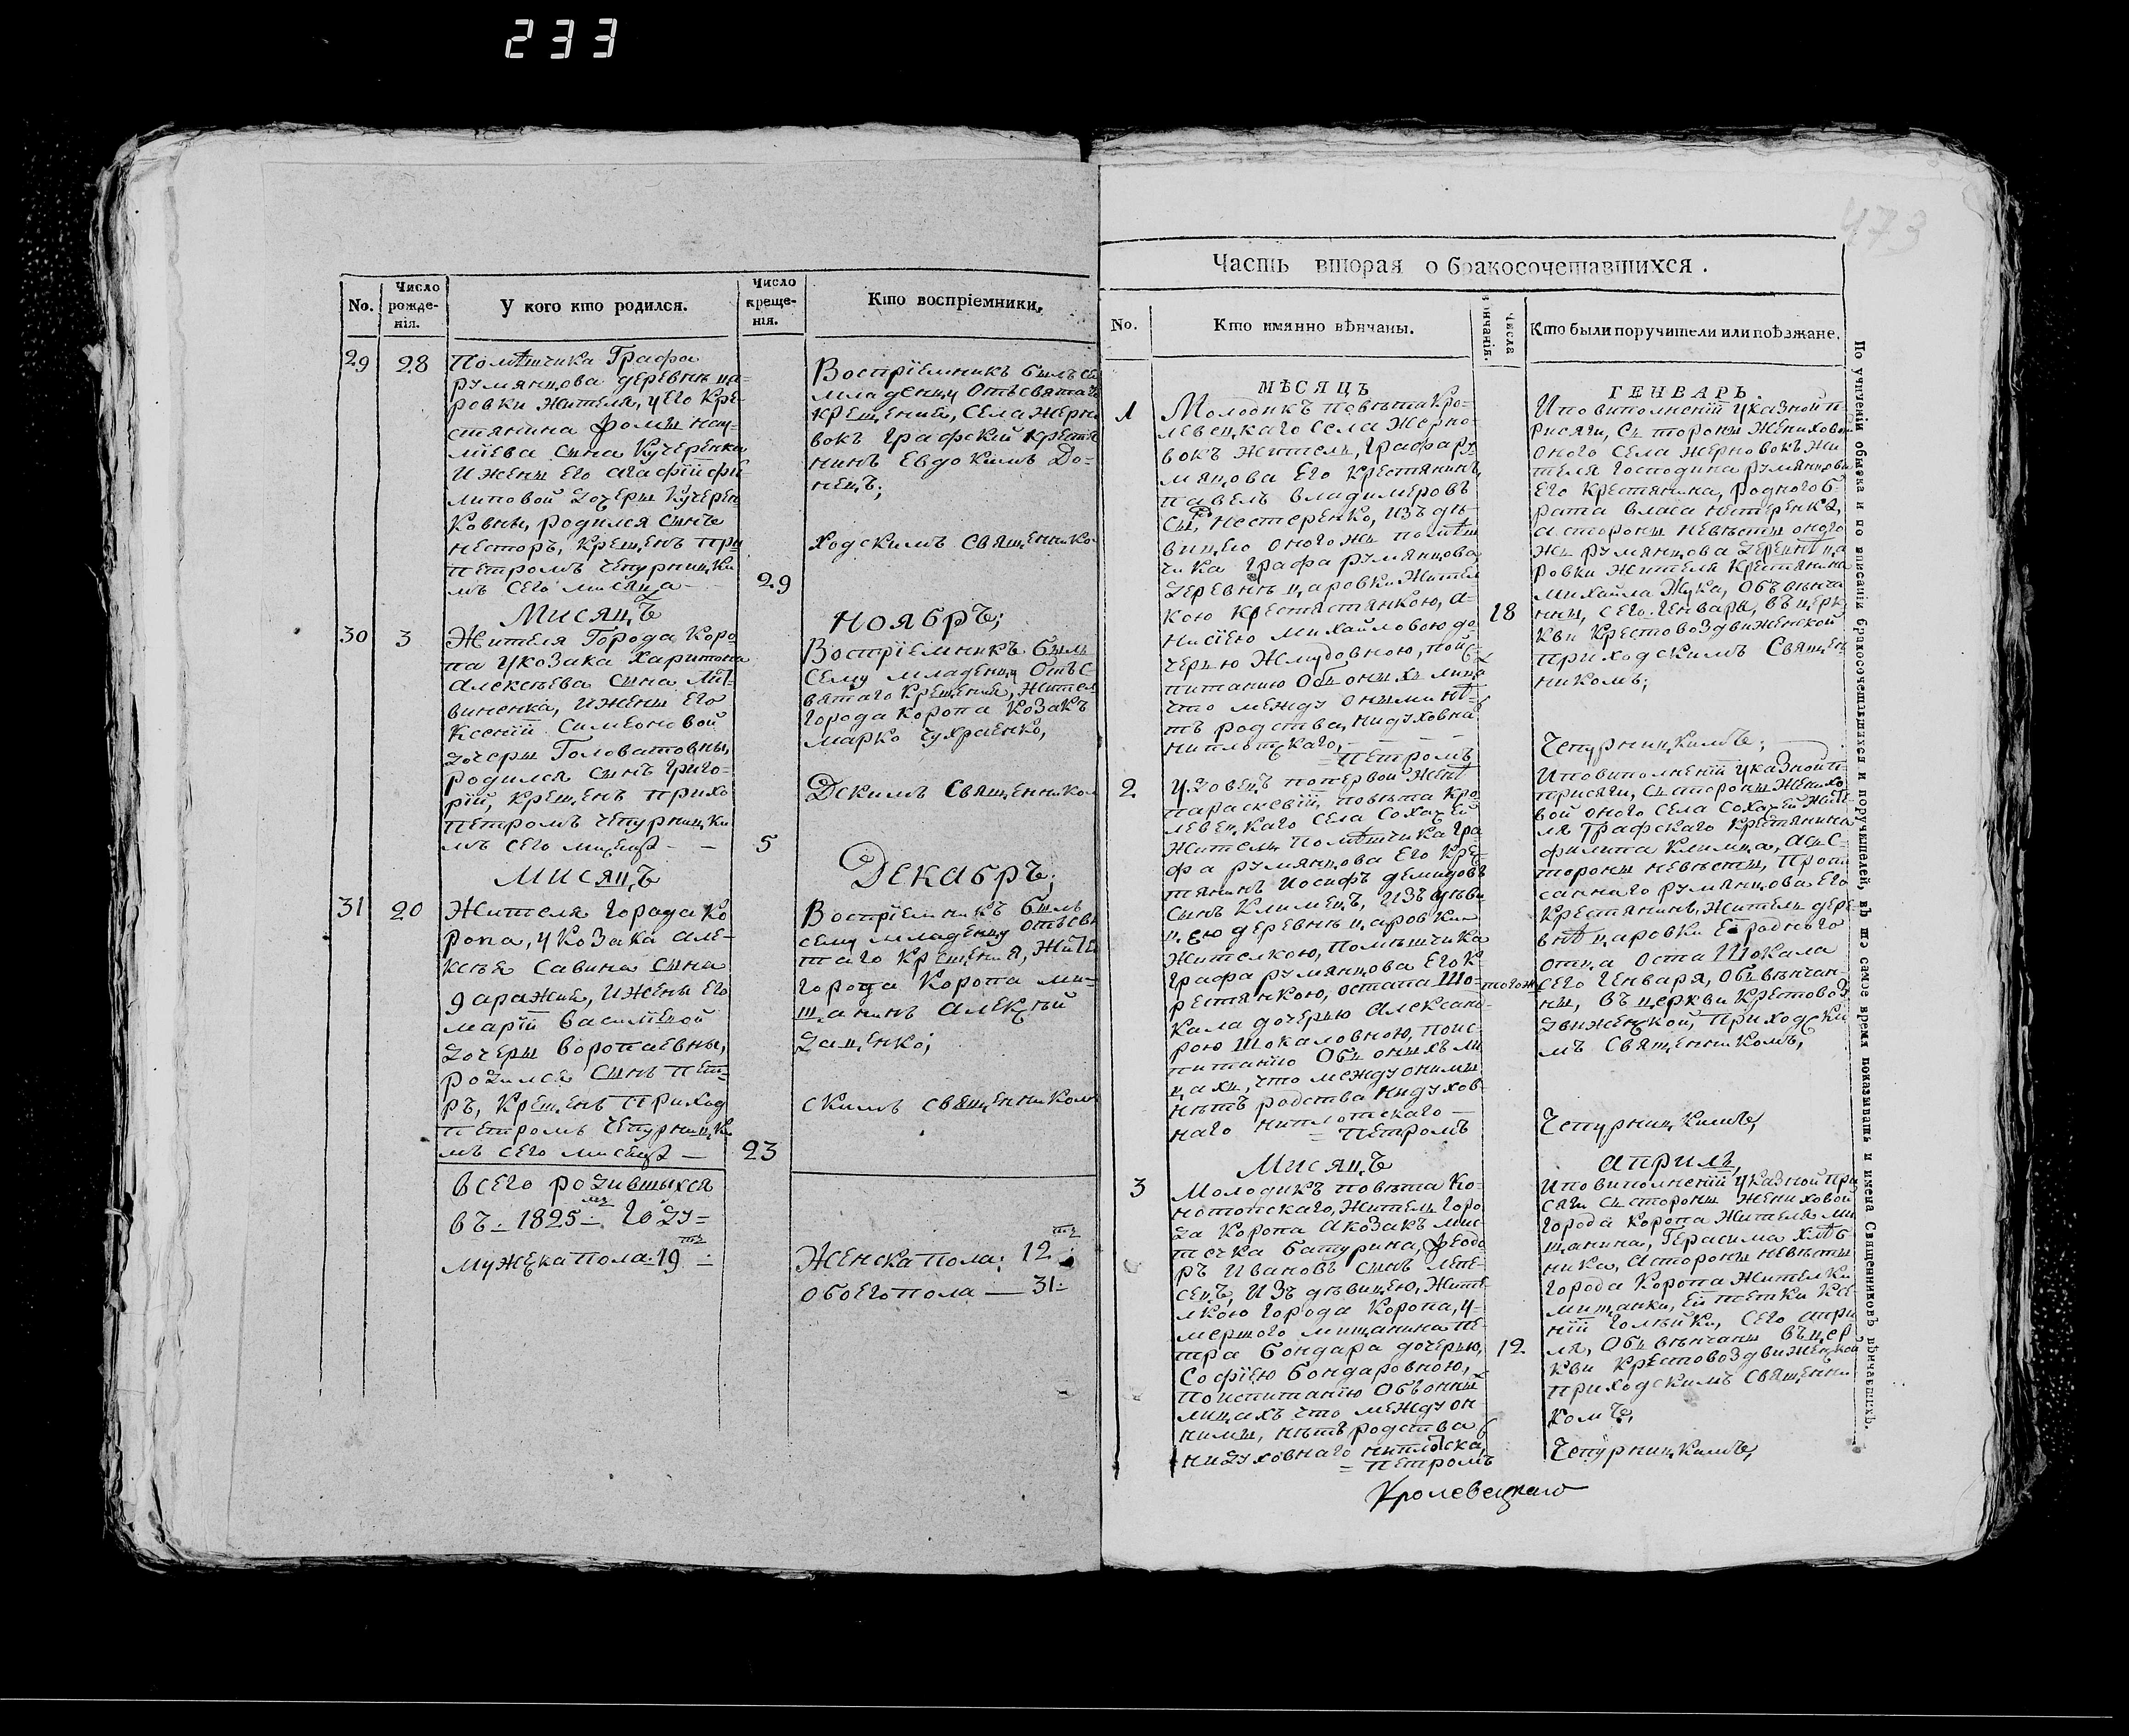 233
No.
Число рожде-нія.
У кого кто родился.
Число креще-нія.
Кто воспріемники,
29
28
Помѣщика Графа
румянцова деревнѣ ца-
ровки жителя, у его кре-
стянина Фомы нау-
міева сына Кучеренка
и жены его агафіи фи-
липовой дочеры Кучерен
ковны, родился сынъ
несторъ, крещенъ при
петромъ чепурницки
мъ сего мисяца
29
Воспріемникъ былъ се
младенцу отъ святаго
крещения, села жерно
вокъ графский крестя
нинъ Евдокимъ До-
нецъ;
ходскимъ священнико
Мисяцъ
Ноябръ;
30
3
Жителя Города Коро
па у козака Харитона
алексѣева сына Лит-
виненка, и жены его
Ксеніи Симеоновой
дочеры Головатовны,
родился сынъ Григо-
рій, крещенъ прихо
петромъ чепурницки
мъ сего мисеца - -
5
Воспріемникъ былъ
сему младенцу отъ с-
вятаго крещения, жител
города коропа козакъ
марко чухраенко,
Дскимъ священнико
Мисяцъ
Декабръ;
31
20
Жителя города Ко
ропа, у козака але-
ксѣя Савина сына
гаражия, и жены его
маріи василиевой
дочеры воропаевны,
родился сынъ пет-
ръ, крещенъ приход
петромъ чепурницки
мъ сего мисеца —
23
Воспріемникъ былъ
сему младенцу отъ свя
таго крещения, жите
города Коропа ми-
щанинъ Алексѣй
зацѣнко;
скимъ священникомъ
всего родившихся
въ - 1825 - году =
мужеска пола: 19 -
Женска пола: 12
обоего пола — 31-
473
Часть вторая о бракосочетавшихся.
No.
Кто имянно вѣнчаны.
числа вѣнчанія.
Кто были поручители или поѣзжане.
МѢСЯЦЪ
ГЕНВАРЬ.
1
Молодикъ повѣта Кро-
левецкаго села Жерно-
вокъ житель, графа ру-
мянцова его крестянинъ
павелъ владимеровъ
сынъ Нестеренко, изъ дѣ-
вицею оного жъ помѣщ
чика графа румянцова
деревнѣ царовки жител
кою крестястянкою, а-
нисіею Михайловою до
черью Жмудовною, по ис
питанию объ оныхъ лица
что между оными нѣ-
тъ родства ни духовна
ни плотскаго, —
= петромъ
18
И по виполненіи указной п-
рисяги, съ тороны женихово
оного села жерновокъ жи
теля господина румянцова
его крестянина, родного б-
рата власа нетеренка,
а стороны невѣсты оного
жъ румянцова деревнѣ ца
ровки жителя крестянина
михаила жука, объ вѣнча
ны, сего генваря, въ церк
кви Крестовоздвиженской
приходскимъ священ
никомъ;
Чепурницкимъ;
2
Удовецъ по первой женѣ
параскевіи, повѣта кро
левецкаго села Сохачей
житель помѣщика гра
фа румянцова его кре-
тянинъ Иосифъ демидовъ
сынъ Климецъ, изъ дѣви
цею деревнѣ царовки
жителкою, помѣщика
графа румянцова его к-
рестянкою, остапа Шо-
кала дочерью Александ
рою Шокаловною, по ис-
питанію объ оныхъ ли
цахъ, что между оними
нѣтъ родства ни духов-
наго ни плотскаго —
= петромъ
тогож
И по виполненіи указной п-
присяги, съ стороны женихо
вой оного села сохачей жите
ля Графского крестянина
филипа климца, а съ с-
тороны невѣсты, пропи
санного румянцова его
крестянинъ, житель дере
внѣ царовки Ея родного
отца Оста Шокала
сего Генваря, объ вѣнчан-
ны, въ церкви Крестовоз
движенской, приходски
мъ священникомъ,
Чепурницкимъ,
Мисяцъ
априлъ,
3
Молодикъ повѣта Ко-
нотопскаго, житель горо
да Коропа а козакъ мис-
течка батурина, Феодо
ръ Ивановъ сынъ лепе-
сецъ, изъ дѣвицею, жите
лкою города Коропа, у-
мершого мищанина пе-
тра бондара дочерью,
Софіею бондаровною,
по испитанію объ оныхъ
лицахъ что между он
ними, нѣтъ родства
ни духовнаго ни плотска,
= петромъ
12
И по виполненіи указной при
сяги съ стороны жениховой
города Коропа жителя ми
щанина, Герасима хлѣб-
ника, а стороны невѣсты
города Коропа жителки
мищанки, ей тетки ксе
ніи голѣйки, сего апри
ля, объ вѣнчаны въ цер
кви Крестовоздвиженской
приходскимъ священни
комъ,
Чепурницкимъ,
Кролевецкаго
По учиненіи обыска и по вписаніи бракосочетавшихся и поручителей, въ то самое время показывать и имена Священниковъ вѣнчавшихъ.